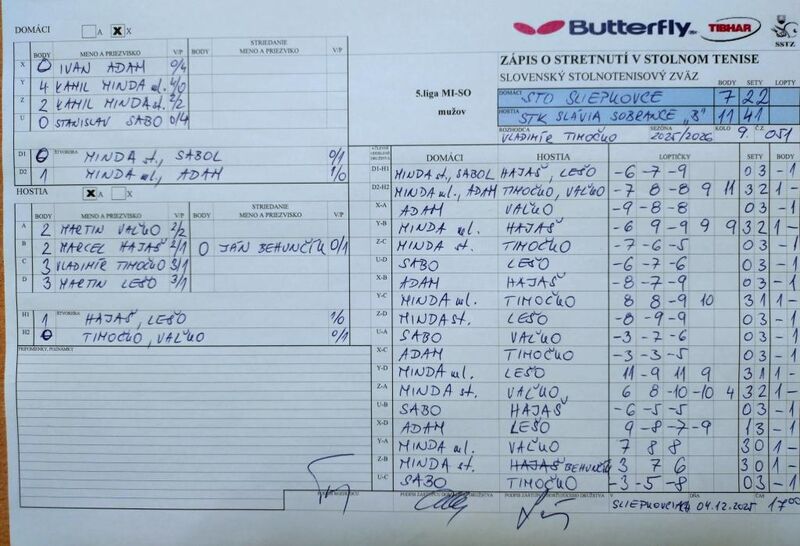 DOMÁCI A X X
BODY MENO A PRIEZVISKO V/P BODY STRIEDANIE MENO A PRIEZVISKO V/P
X 0 IVAN ADAM 0/4
Y 4 KAMIL MINDA ml. 4/0
Z 2 KAMIL MINDA st. 2/2
U 0 STANISLAV SABO 0/4
D1 0 ŠTVORHRA MINDA st., SABOL 0/1
D2 1 MINDA ml., ADAM 1/0
HOSTIA A X X
BODY MENO A PRIEZVISKO V/P BODY STRIEDANIE MENO A PRIEZVISKO V/P
A 2 MARTIN VAĽKO 2/2
B 2 MARCEL HAJAŠ 2/1 0 JÁN BEHUNČÍK 0/1
C 3 VLADIMÍR TIMOČKO 3/1
D 3 MARTIN LEŠO 3/1
H1 1 ŠTVORHRA HAJAŠ, LEŠO 1/0
H2 0 TIMOČKO, VAĽKO 0/1
PRIPOMIENKY, POZNÁMKY
Butterfly TIBHAR SSTZ
ZÁPIS O STRETNUTÍ V STOLNOM TENISE
SLOVENSKÝ STOLNOTENISOVÝ ZVÄZ BODY SETY LOPTY
5.liga MI-SO
mužov
DOMÁCI STO SLIEPKOVCE 7 22
HOSTIA STK SLÁVIA SOBRANCE „B" 11 41
ROZHODCA VLADIMÍR TIMOČKO SEZÓNA 2025/2026 KOLO 9. Č.Z. 051
DOMÁCI HOSTIA LOPTIČKY SETY BODY
D1-H1 MINDA st., SABOL HAJAŠ, LEŠO -6 -7 -9 0 3 -1
D2-H2 MINDA ml., ADAM TIMOČKO, VAĽKO -7 8 -8 9 11 3 2 1-
X-A ADAM VAĽKO -9 -8 -8 0 3 -1
Y-B MINDA ml. HAJAŠ -6 9 -9 9 9 3 2 1-
Z-C MINDA st. TIMOČKO -7 -6 -5 0 3 -1
U-D SABO LEŠO -6 -7 -6 0 3 -1
X-B ADAM HAJAŠ -8 -7 -9 0 3 -1
Y-C MINDA ml. TIMOČKO 8 8 -9 10 3 1 1-
Z-D MINDA st. LEŠO -8 -9 -9 0 3 -1
U-A SABO VAĽKO -3 -7 -6 0 3 -1
X-C ADAM TIMOČKO -3 -3 -5 0 3 -1
Y-D MINDA ml. LEŠO 11 -9 11 9 3 1 1-
Z-A MINDA st. VAĽKO 6 8 -10 -10 4 3 2 1-
U-B SABO HAJAŠ -6 -5 -5 0 3 -1
X-D ADAM LEŠO 9 -8 -7 -9 1 3 -1
Y-A MINDA ml. VAĽKO 7 8 8 3 0 1-
Z-B MINDA st. HAJAŠ BEHUNČÍK 3 7 6 3 0 1-
U-C SABO TIMOČKO -3 -5 -8 0 3 -1
V SLIEPKOVCIACH DŇA 04.12.2025 ČAS 17⁰⁰